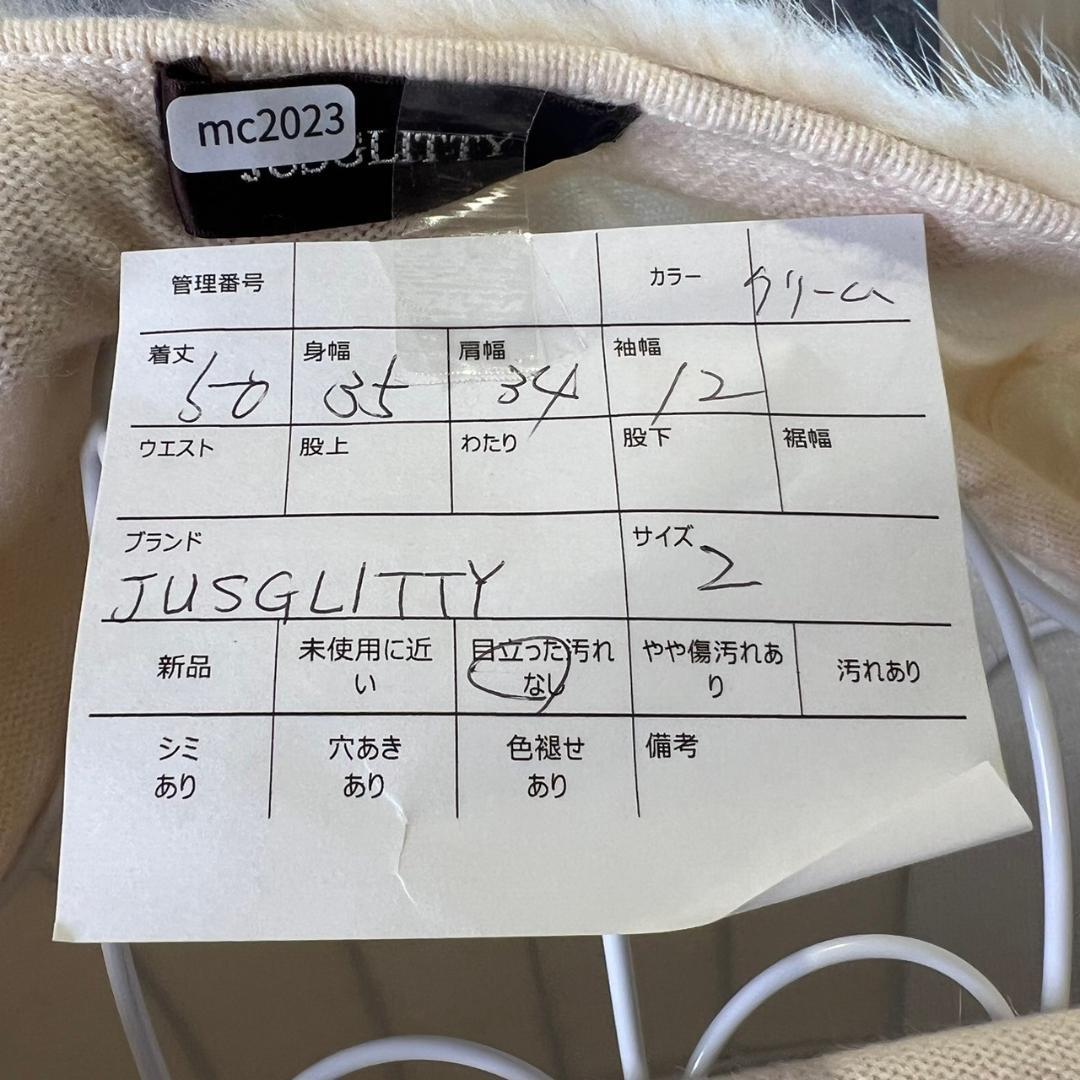 mc2023
JUSGLITTY
管理番号 カラー クリーム
着丈 身幅 肩幅 袖幅
50 35 34 12
ウエスト 股上 わたり 股下 裾幅
ブランド サイズ
JUSGLITTY 2
新品 未使用に近 目立った汚れ やや傷汚れあ 汚れあり
い なし り
シミ 穴あき 色褪せ 備考
あり あり あり